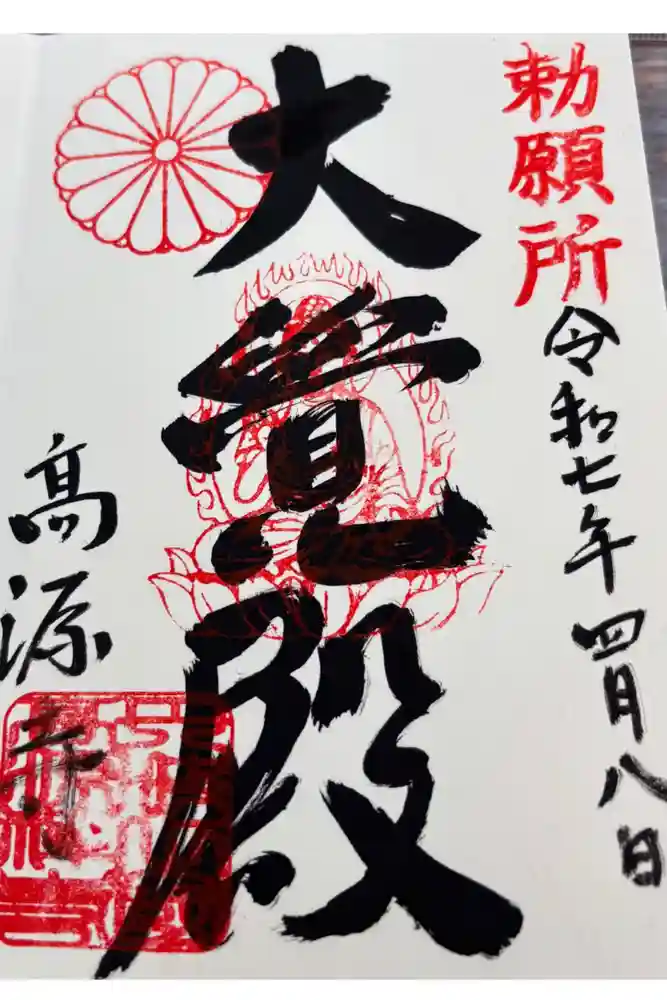 勅願所
令和七年四月八日
大覺殿
高源寺